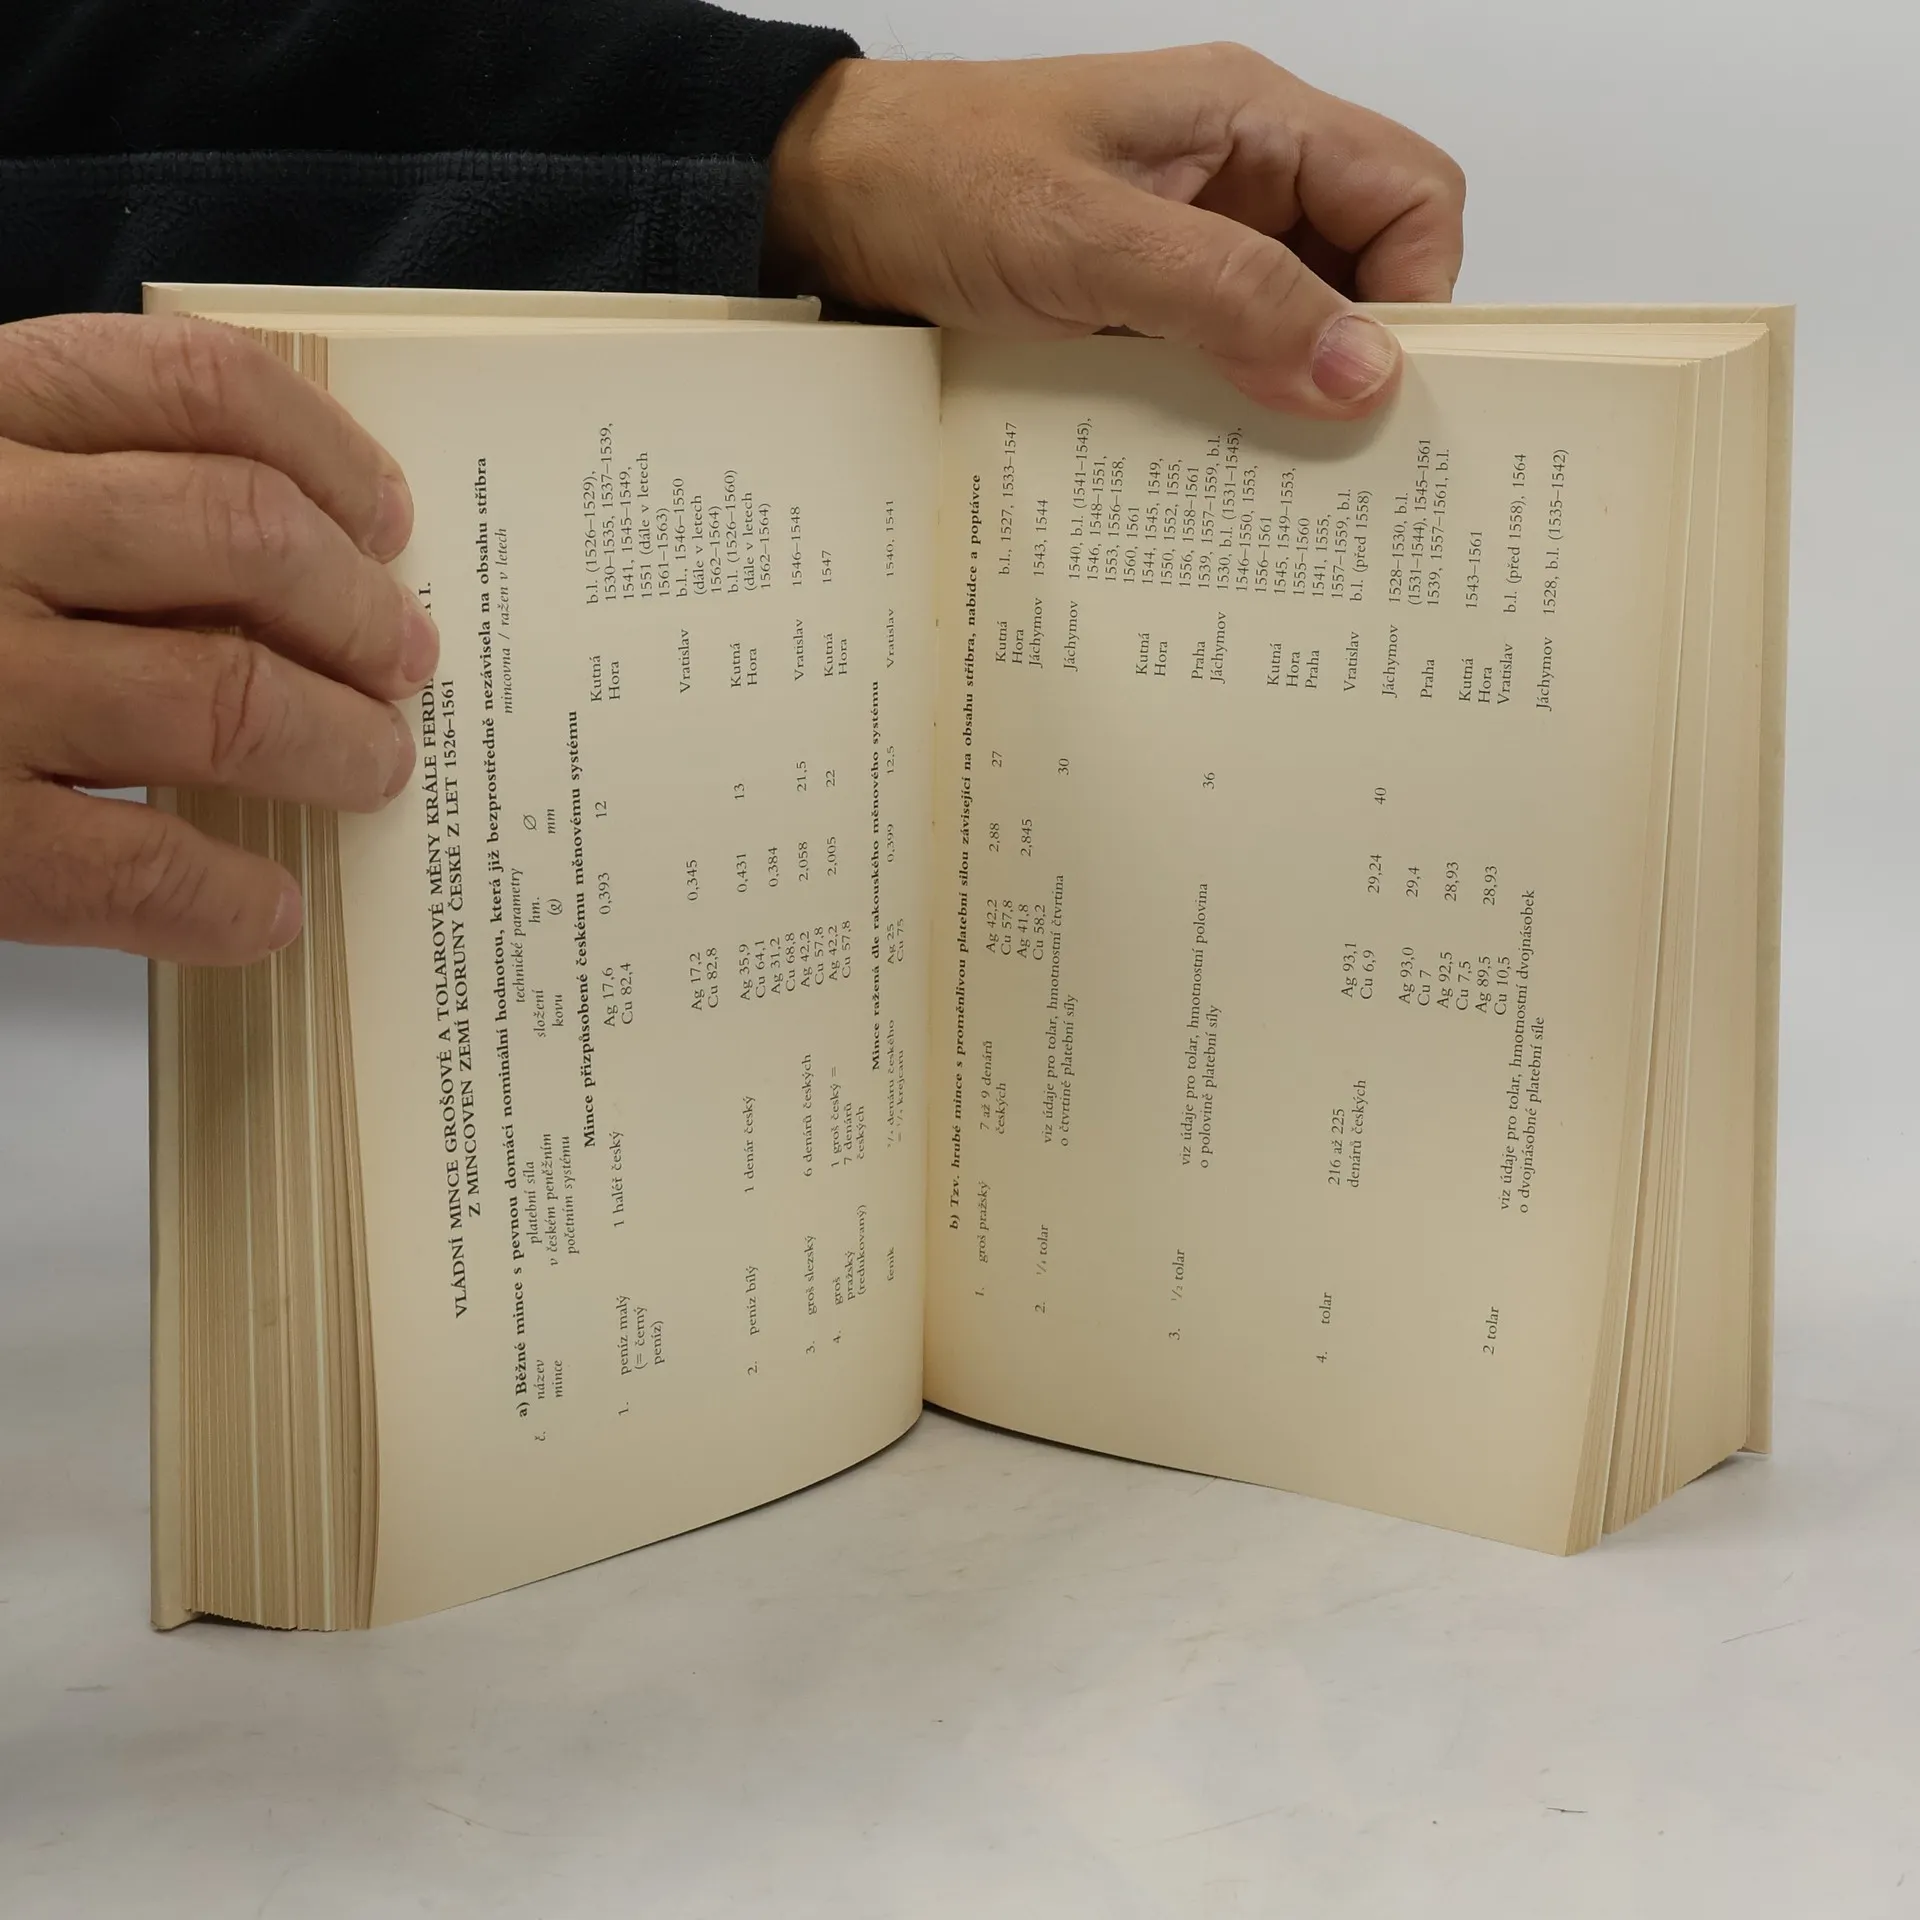 VLÁDNÍ MINCE GROŠOVÉ A TOLAROVÉ MĚNY KRÁLE I.
Z MINCOVEN ZEMÍ KORUNY ČESKÉ Z LET 1526–1561
a) Běžné mince s pevnou domácí nominální hodnotou, která již bezprostředně nezávisela na obsahu stříbra
č. název platební síla technické parametry mincovna / ražen v letech
mince v českém peněžním složení hm. Ø
početním systému kovu (g) mm
Mince přizpůsobené českému měnovému systému
1. peníz malý 1 haléř český Ag 17,6 0,393 12 Kutná b.l. (1526–1529),
(= černý Cu 82,4 Hora 1530–1535, 1537–1539,
peníz) 1541, 1545–1549,
1551 (dále v letech
1561–1563)
Ag 17,2 0,345 Vratislav b.l., 1546–1550
Cu 82,8 (dále v letech
1562–1564)
2. peníz bílý 1 denár český Ag 35,9 0,431 13 Kutná b.l. (1526–1560)
Cu 64,1 Hora (dále v letech
Ag 31,2 0,384 1562–1564)
Cu 68,8
3. groš slezský 6 denárů českých Ag 42,2 2,058 21,5 Vratislav 1546–1548
Cu 57,8
4. groš 1 groš český = Ag 42,2 2,005 22 Kutná 1547
pražský 7 denárů Cu 57,8 Hora
(redukovaný) českých
Mince ražená dle rakouského měnového systému
feník denáru českého Ag 25 0,399 12,5 Vratislav 1540, 1541
krejcaru Cu 75
b) Tzv. hrubé mince s proměnlivou platební silou závisející na obsahu stříbra, nabídce a poptávce
1. groš pražský 7 až 9 denárů Ag 42,2 2,88 27 Kutná b.l., 1527, 1533–1547
českých Cu 57,8 Hora
Ag 41,8 2,845 Jáchymov 1543, 1544
Cu 58,2
2. ¹/₄ tolar viz údaje pro tolar, hmotnostní čtvrtina 30 Jáchymov 1540, b.l. (1541–1545),
o čtvrtině platební síly 1546, 1548–1551,
1553, 1556–1558,
1560, 1561
Kutná 1544, 1545, 1549,
Hora 1550, 1552, 1555,
1556, 1558–1561
3. ¹/₂ tolar viz údaje pro tolar, hmotnostní polovina 36 Praha 1539, 1557–1559, b.l.
o polovině platební síly Jáchymov 1530, b.l. (1531–1545),
1546–1550, 1553,
1556–1561
Kutná 1545, 1549–1553,
Hora 1555–1560
Praha 1541, 1555,
1557–1559, b.l.
4. tolar 216 až 225 Ag 93,1 29,24 40 Vratislav b.l. (před 1558)
denárů českých Cu 6,9
Jáchymov 1528–1530, b.l.
Ag 93,0 29,4 (1531–1544), 1545–1561
Cu 7 Praha 1539, 1557–1561, b.l.
Ag 92,5 28,93
Cu 7,5 Kutná 1543–1561
Ag 89,5 28,93 Hora
Cu 10,5 Vratislav b.l. (před 1558), 1564
2 tolar viz údaje pro tolar, hmotnostní dvojnásobek
o dvojnásobné platební síle Jáchymov 1528, b.l. (1535–1542)